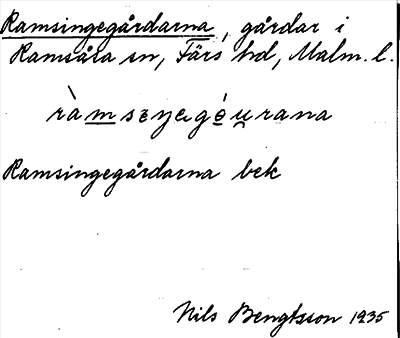 Ramsingegårdarna, gårdar i
Ramsåsa sn, Färs hd, Malm. l.
ràmseŋegóu̯rana
Ramsingegårdarna bek
Nils Bengtsson 1935